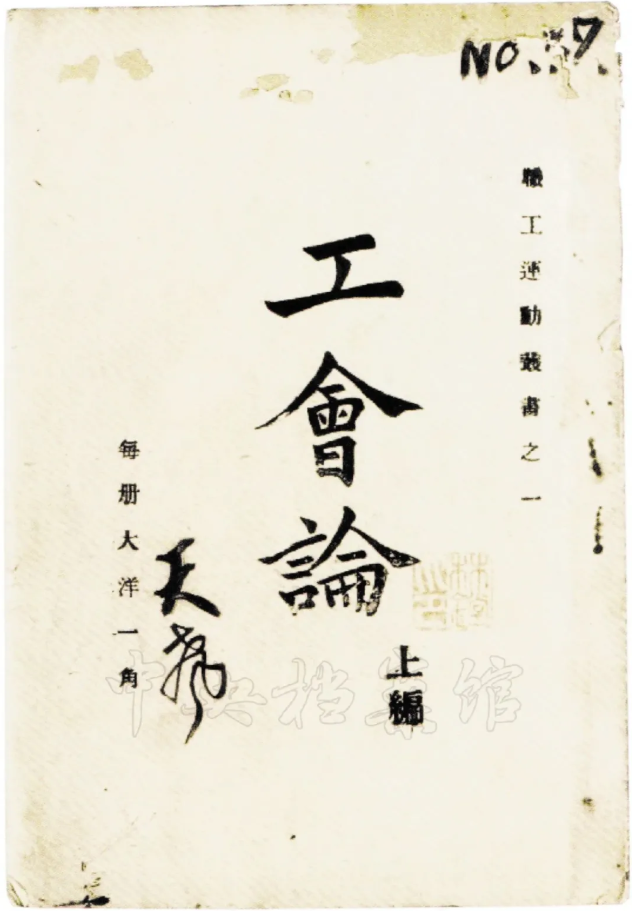 NO. 57
職工運動叢書之一
工會論
上編
每册大洋一角
中央档案馆